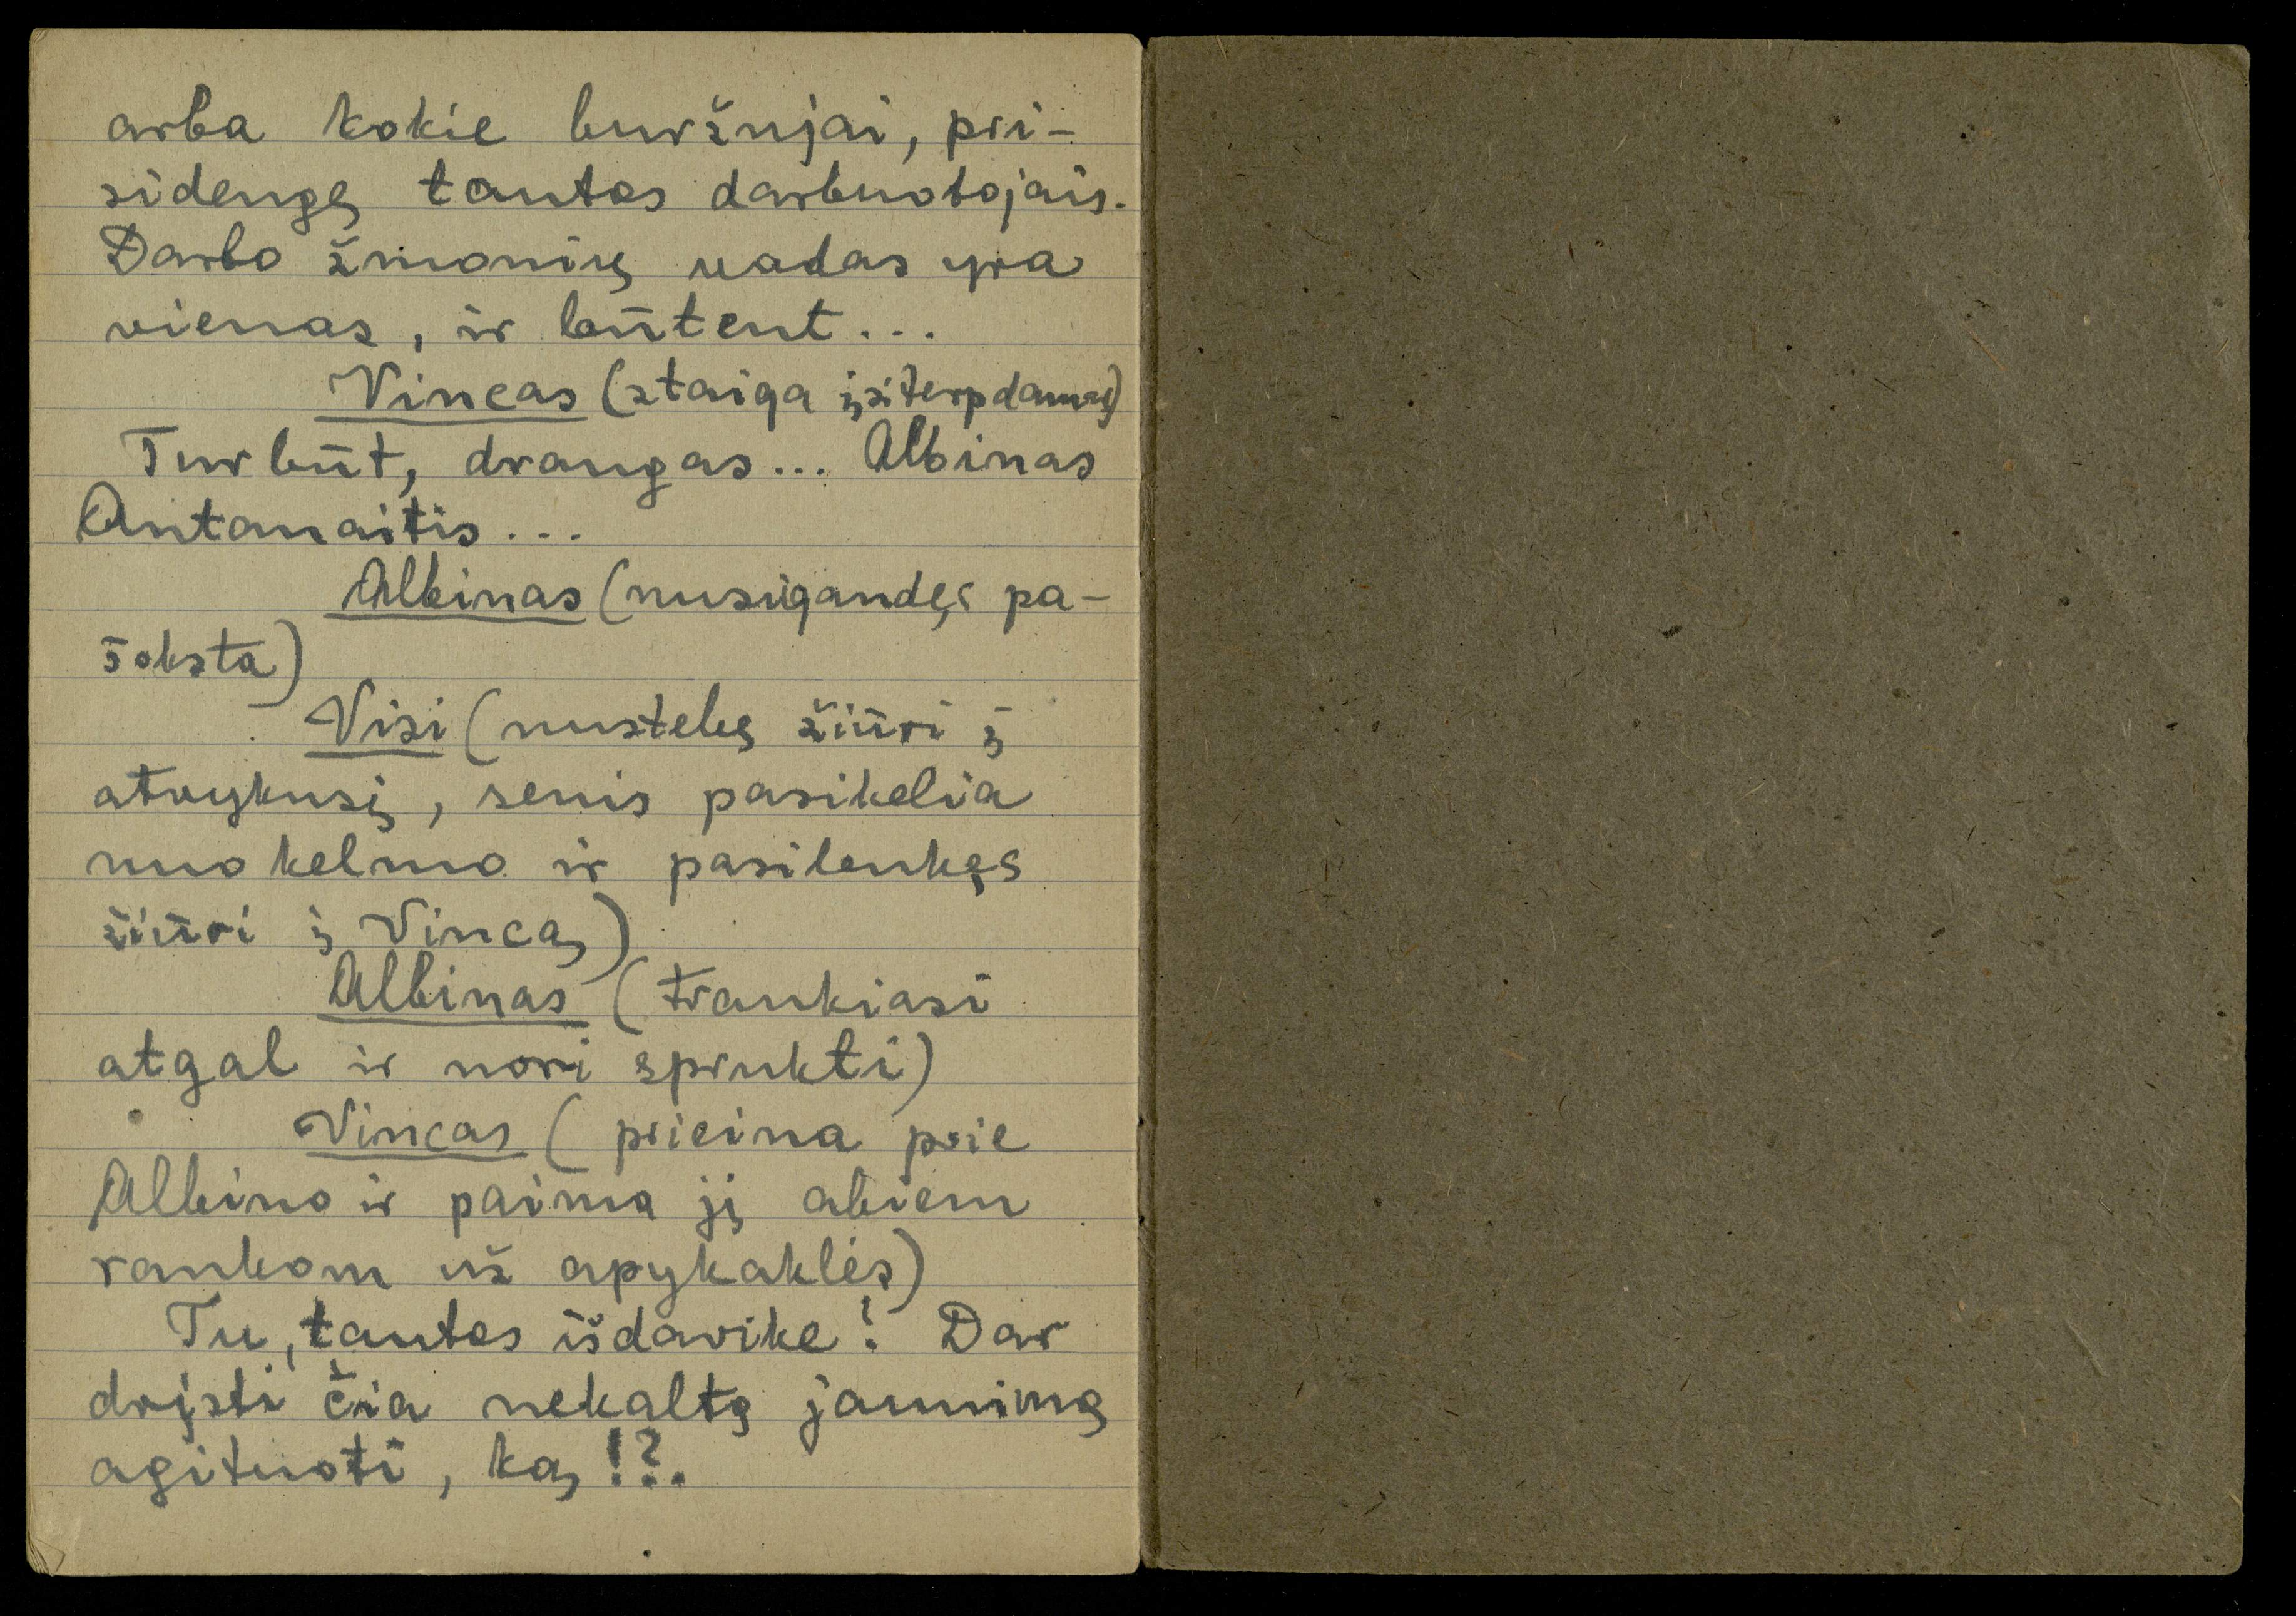 arba kokie buržujai, pri-
sidengę tautos darbuotojais.
Darbo žmonių vadas yra
vienas, ir būtent...
Vincas (staiga įsiterpdamas)
Turbūt, draugas... Albinas
Antanaitis...
Albinas (nusigandęs pa-
šoksta)
Visi (nustebę žiūri į
atvykusį, senis pasikelia
nuo kelmo ir pasilenkęs
žiūri į Vincą)
Albinas (traukiasi
atgal ir nori sprukti)
Vincas (prieina prie
Albino ir paima jį abiem
rankom už apykaklės)
Tu, tautos išdavike! Dar
drįsti čia nekaltą jaunimą
agituoti, ką!?.